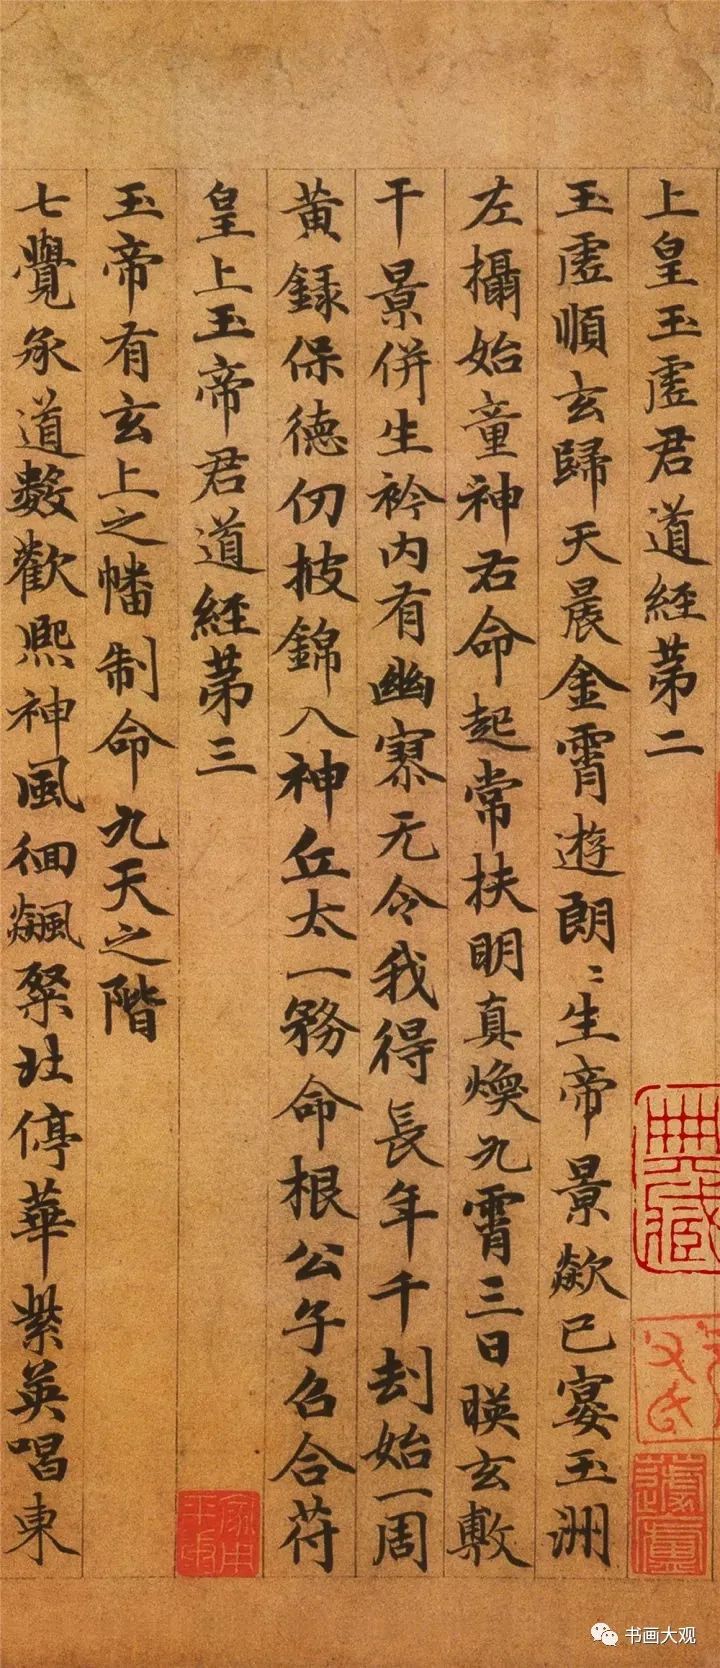 上皇玉虛君道經第二
玉虛順玄歸天晨金霄遊朗〻生帝景歘已宴玉洲
左攝始童神右命起常扶明真煥九霄三日暎玄敷
千景併生衿內有幽寥无令我得長年千刧始一周
黃錄保德仞披錦入神丘太一務命根公子名合符
皇上玉帝君道經第三
玉帝有玄上之幡制命九天之階
七覺承道數歡熙神風徊飊粲壯停華紫英唱東
典藏
書画大观